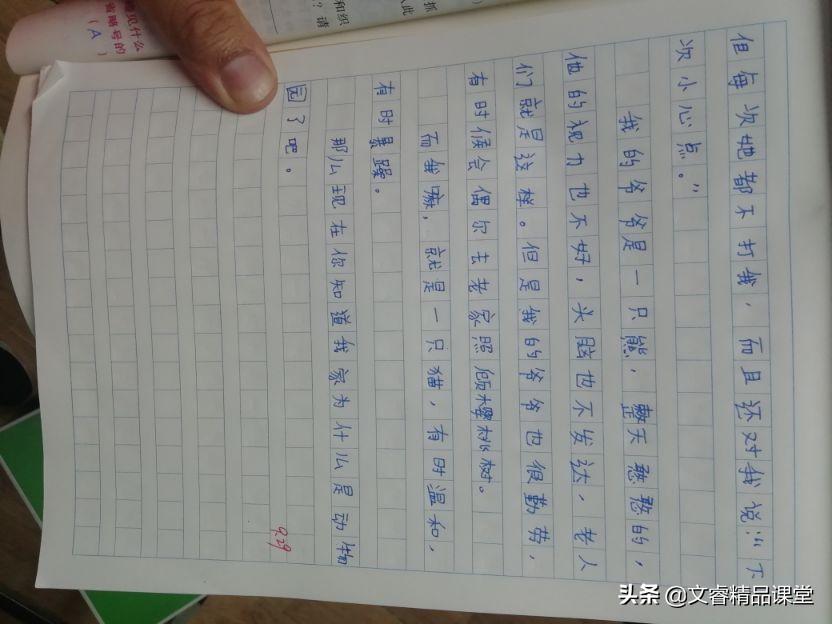 但每次她都不打我，而且还对我说：“下
次小心点。”
我的爷爷是一只熊，整天憨憨的，
他的视力也不好，头脑也不发达，老人
们就是这样。但是我的爷爷也很勤劳，
有时候会偶尔去老家照顾樱桃树。
而我嘛，就是一只猫，有时温和，
有时暴躁。
那么现在你知道我家为什么是动物
园了吧。
9.29
见什么
省略号的
（A）
和织
？请
抓
从此
头条 @文睿精品课堂